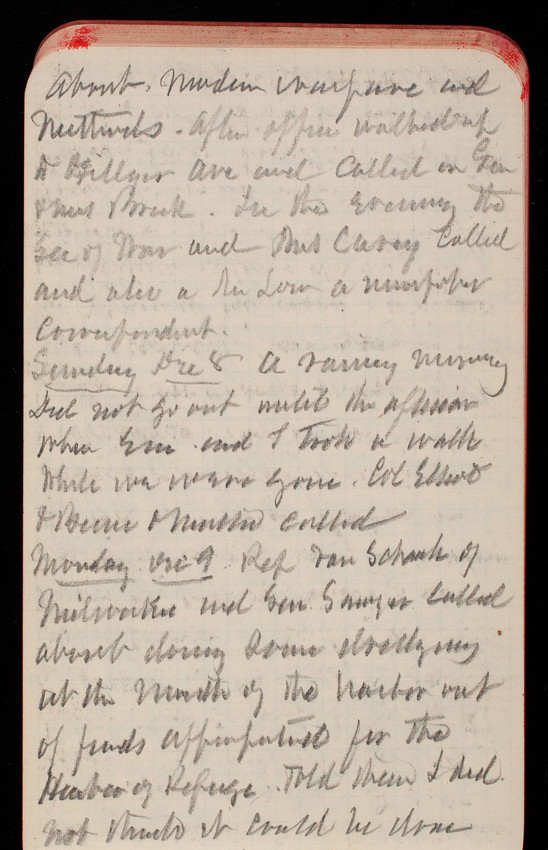 about. Modern warfare and
Methods. After office walked up
to Hillyer Ave and called on Gen
& Mrs Breck. In the evening the
Sec of War and Mrs Carey called
and also a Mr Low a newspaper
correspondent.
Sunday Dec 8 A rainy morning
Did not go out until the afternoon
when Em and I took a walk
While we were gone. Col Elliot
& called
Monday Dec 9. Rep Van Schaick of
Milwaukee and Gen Sawyer called
about doing some dredging
at the Mouth of the harbor out
of funds appropriated for the
Harbor of Refuge. Told them I did
not think it could be done